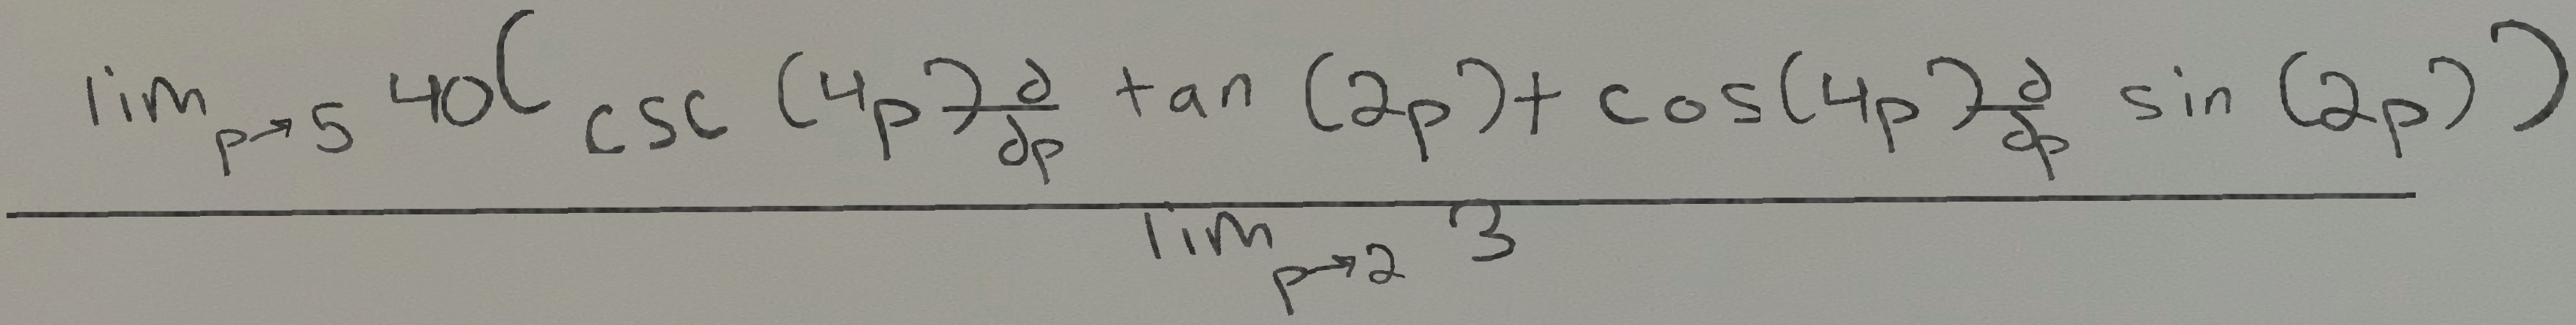 lim_{p→5} 40(csc(4p) ∂/∂p tan(2p) + cos(4p) ∂/∂p sin(2p))
lim_{p→2} 3